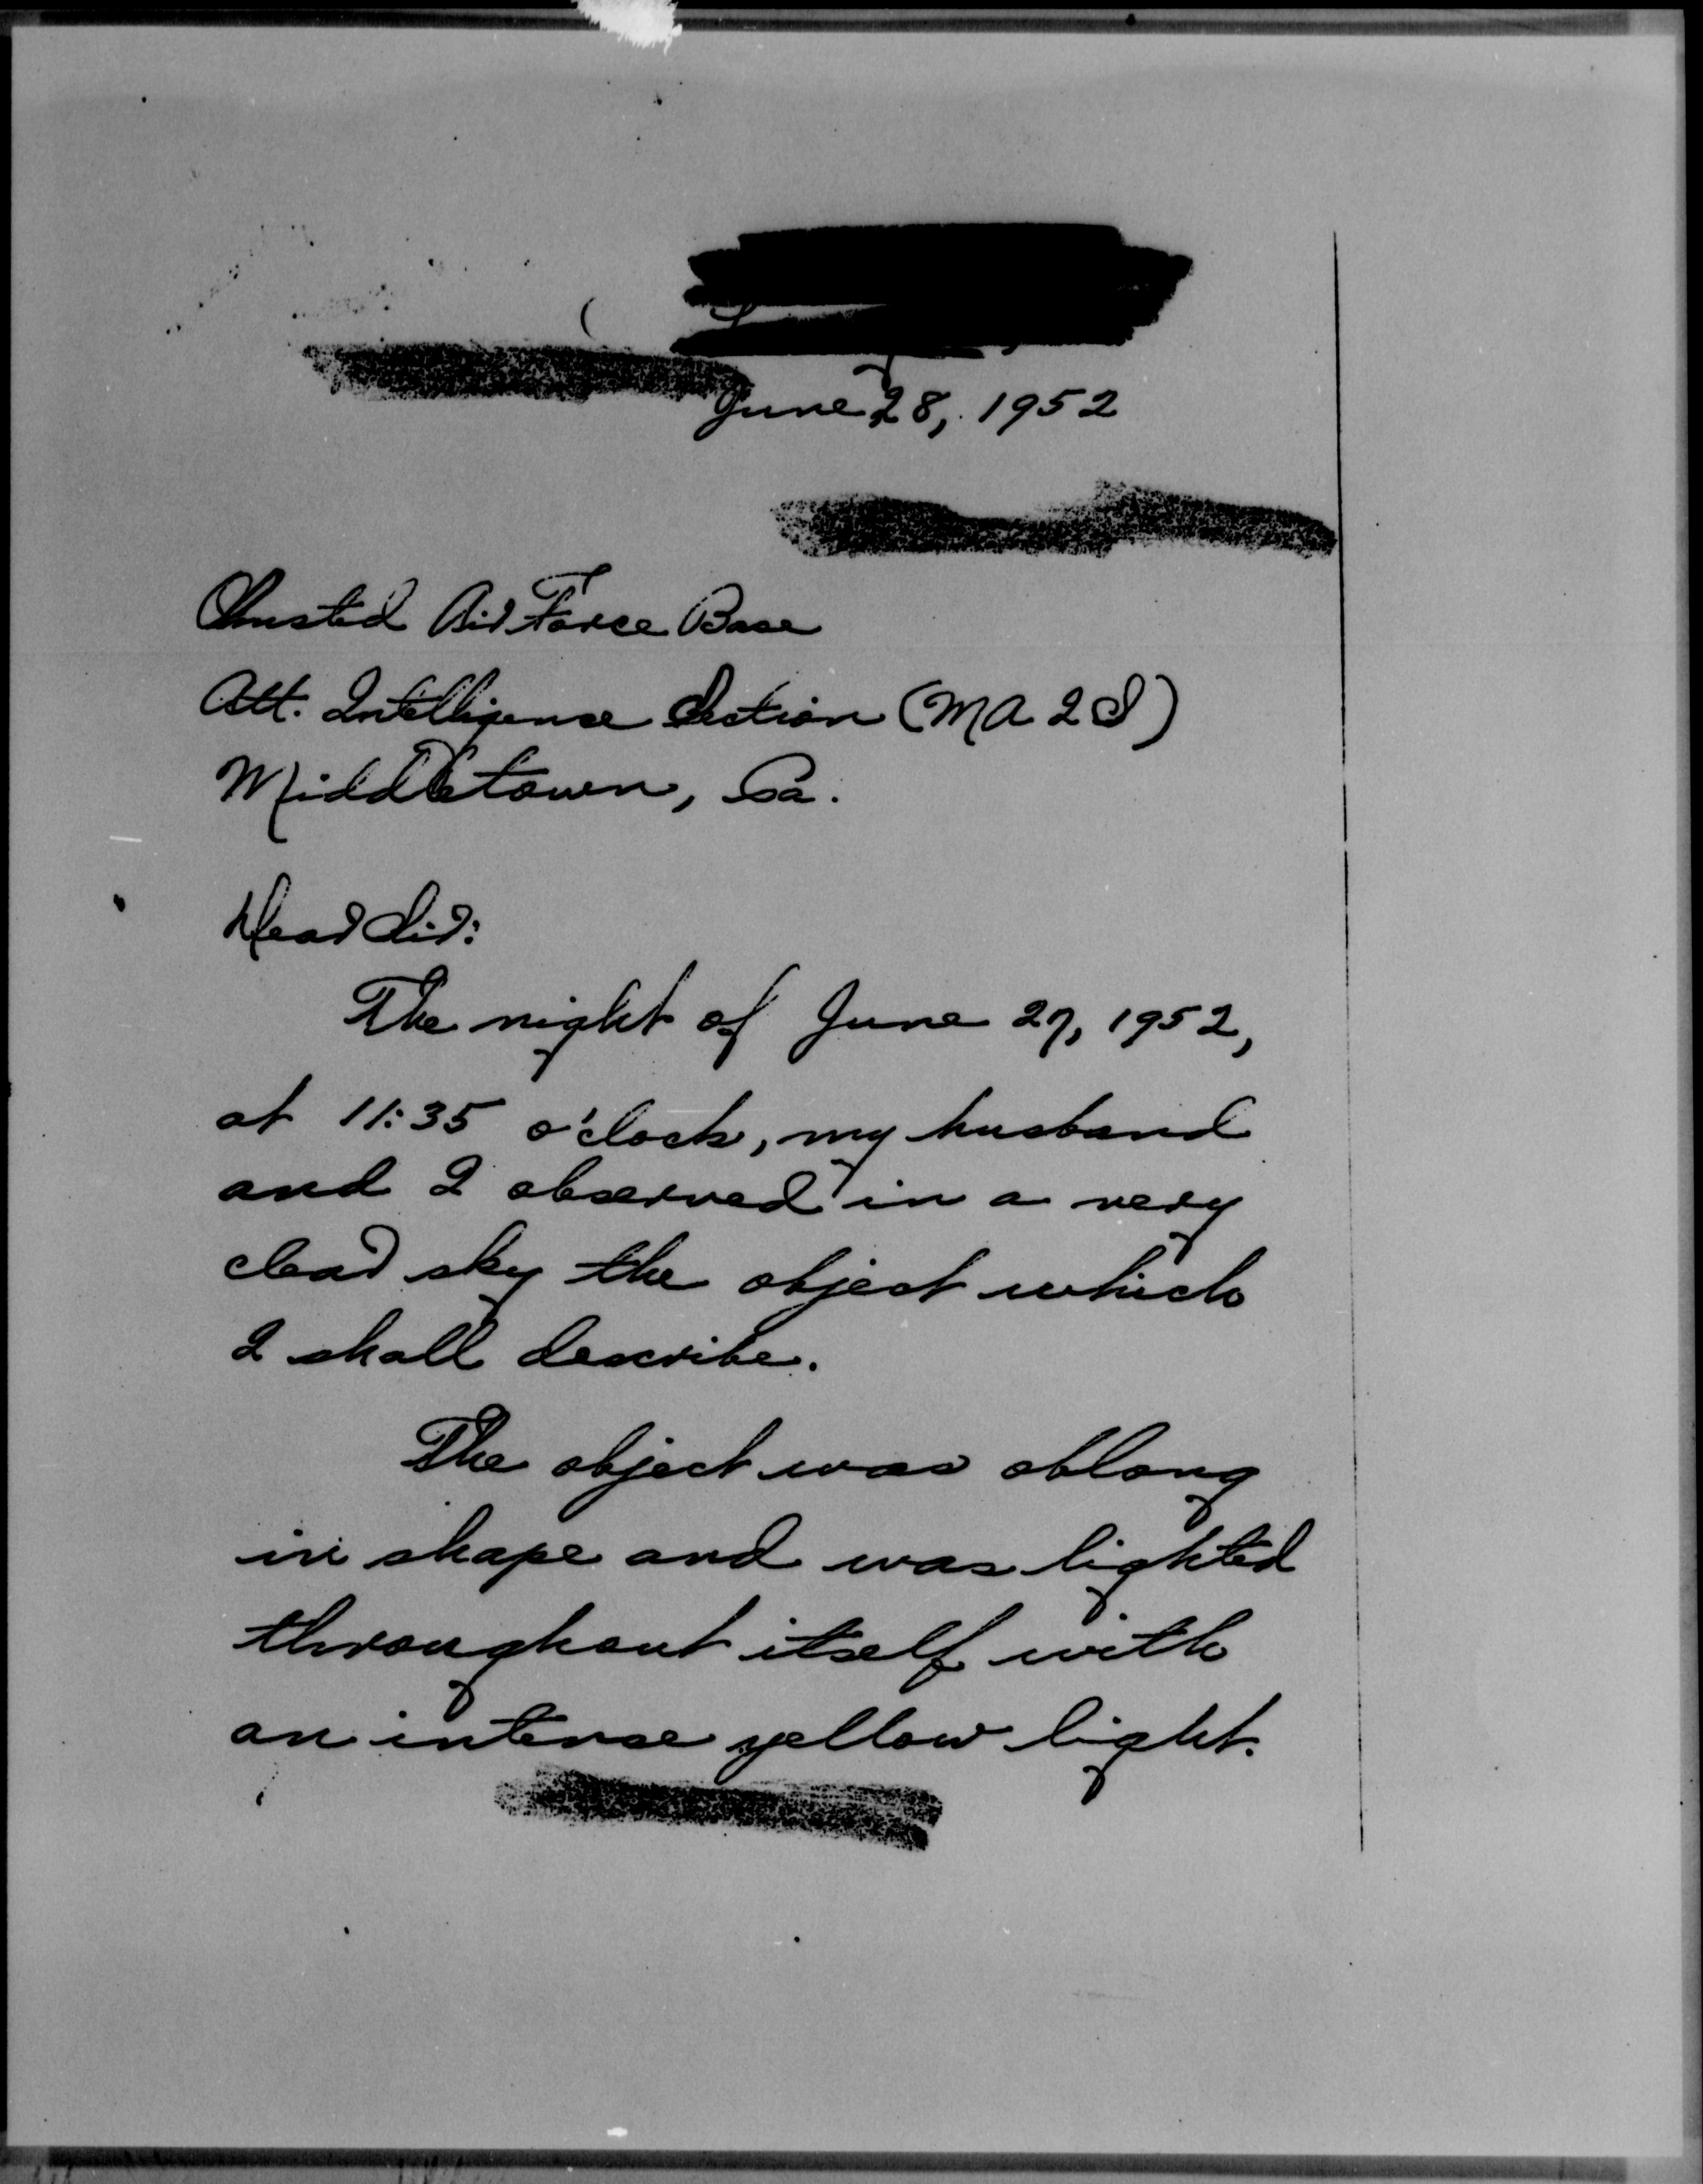 June 28, 1952
Olmsted Air Force Base
Att. Intelligence Section (MA 2 S)
Middletown, Pa.
Dear Sir:
The night of June 27, 1952,
at 11:35 o'clock, my husband
and I observed in a very
clear sky the object which
I shall describe.
The object was oblong
in shape and was lighted
throughout itself with
an intense yellow light.